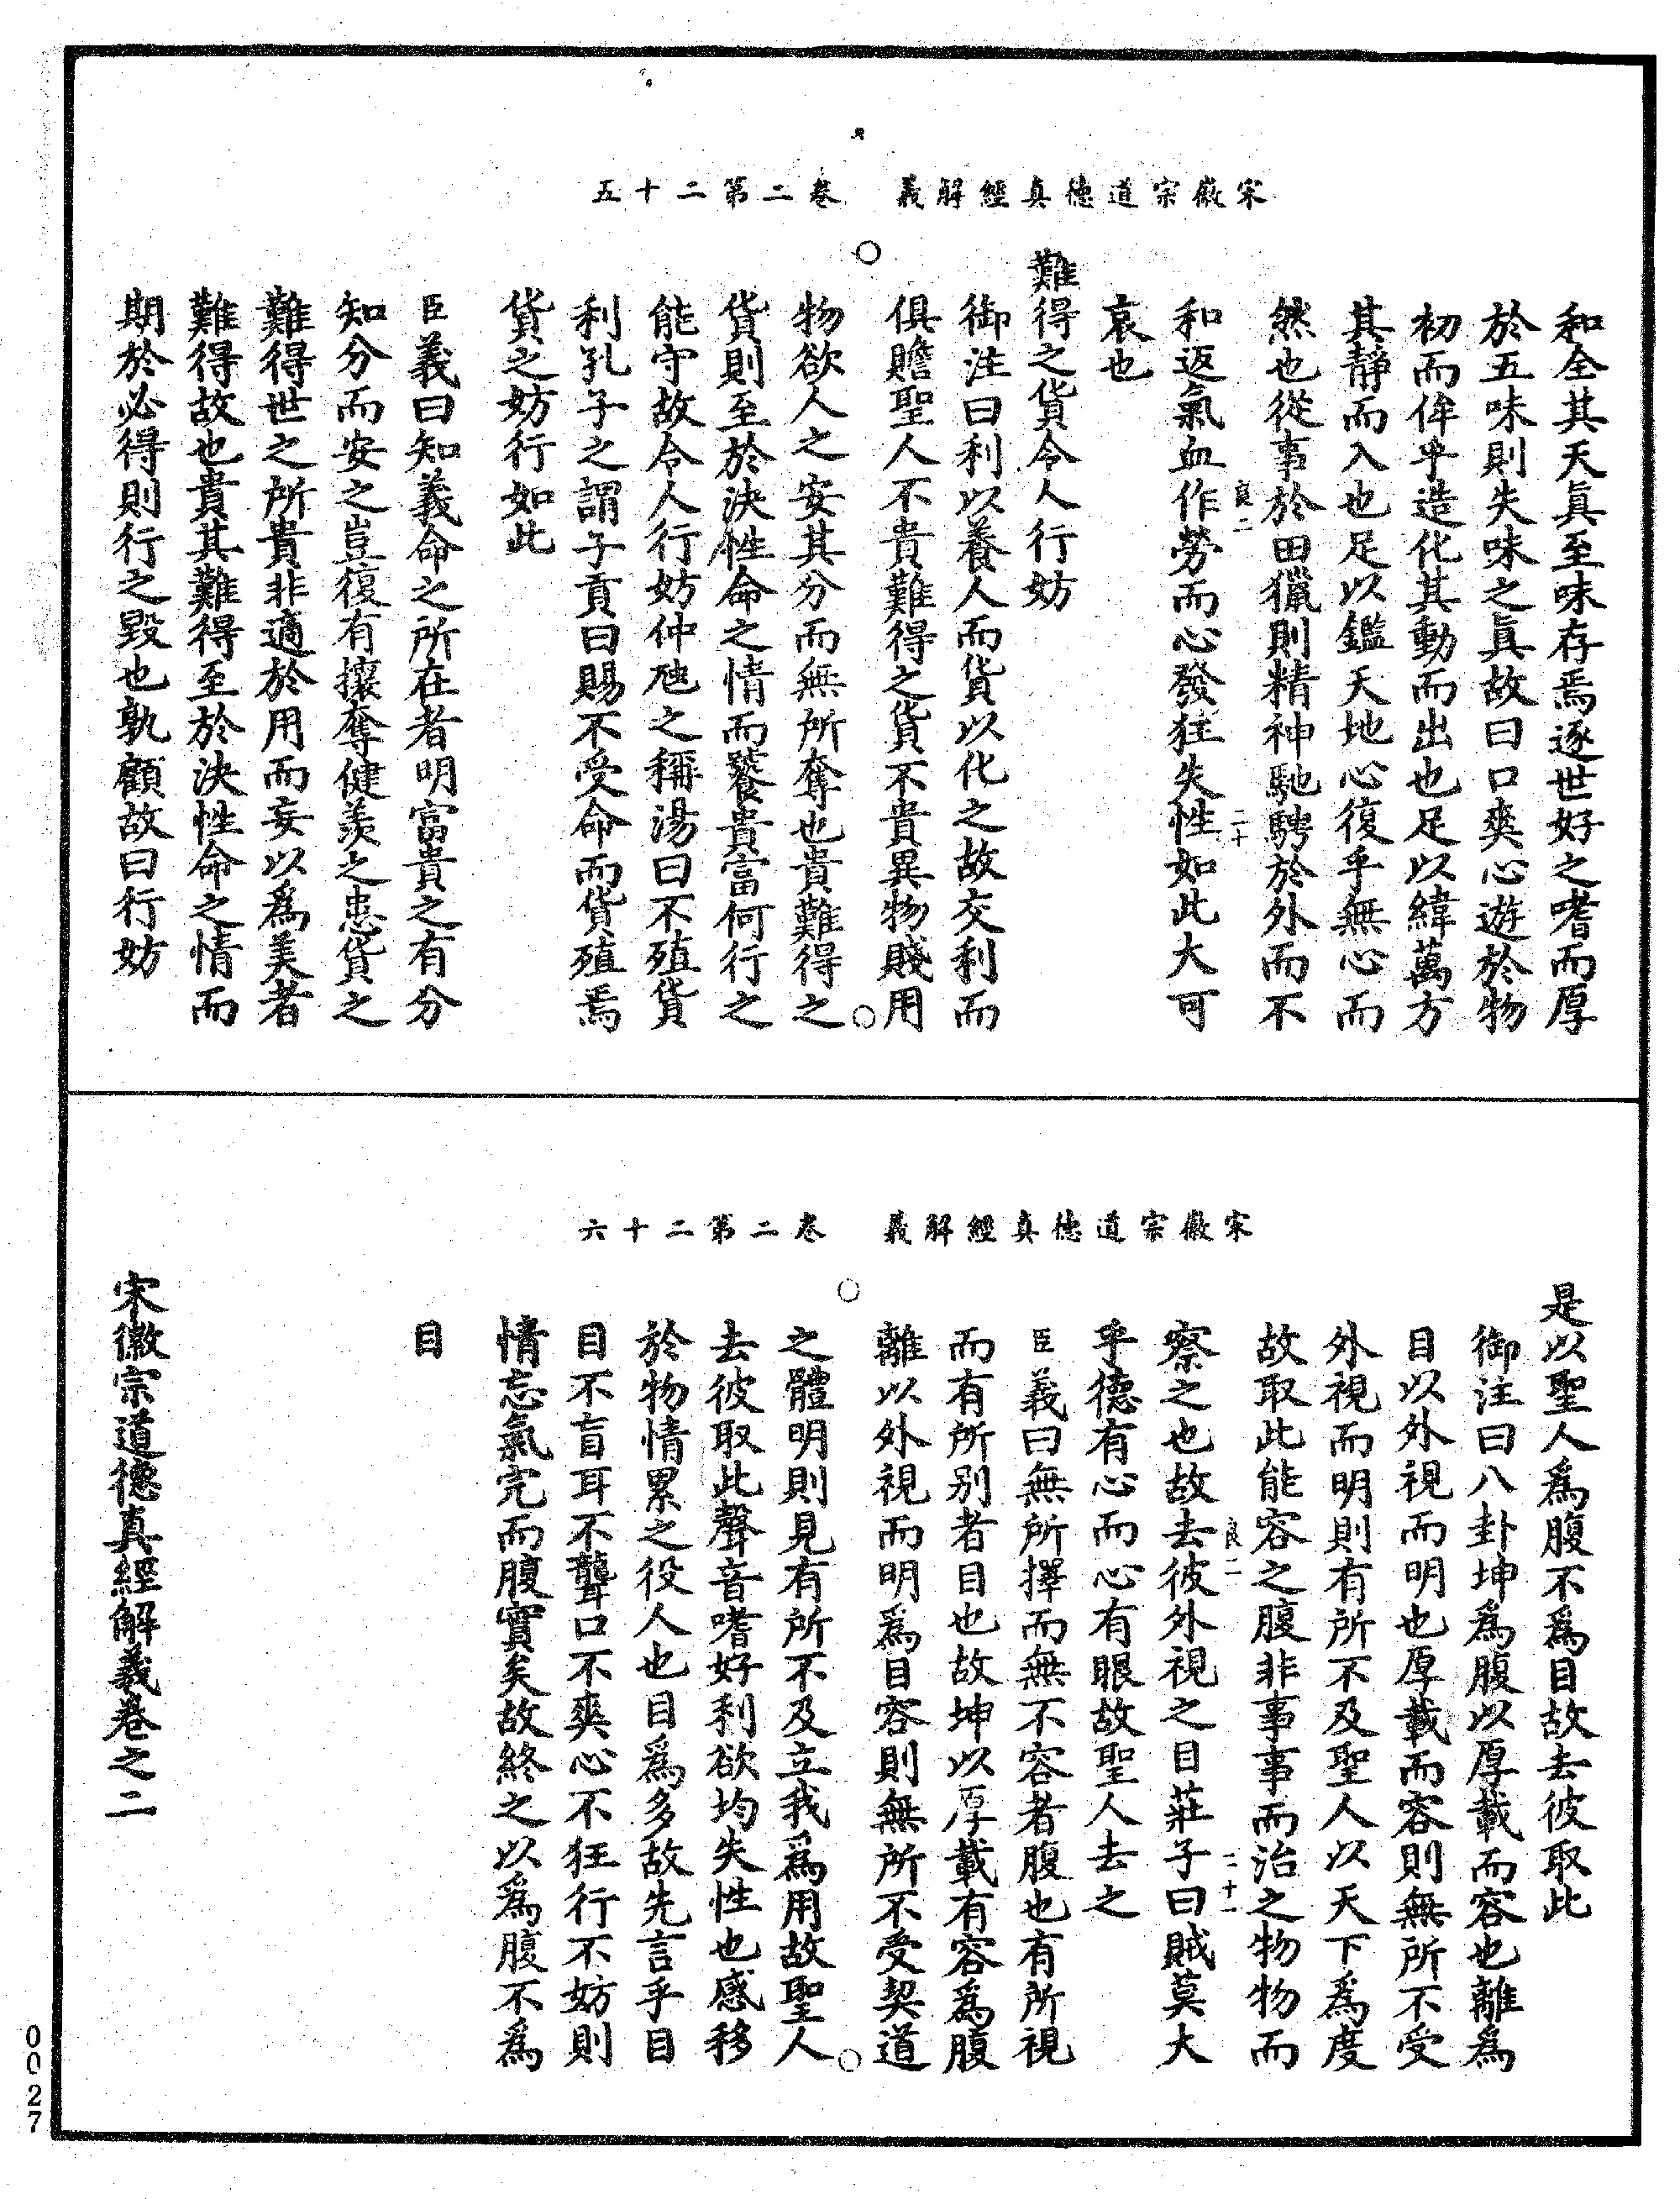 宋徽宗道德真經解義　卷二第二十五
和全其天眞至味存焉逐世好之嗜而厚
於五味則失味之眞故曰口爽心遊於物
初而侔乎造化其動而出也足以緯萬方
其靜而入也足以鑑天地心復乎無心而
然也從事於田獵則精神馳騁於外而不
良二　二十
和返氣血作勞而心發狂失性如此大可
哀也
難得之貨令人行妨
御注曰利以養人而貨以化之故交利而
俱贍聖人不貴難得之貨不貴異物賤用
物欲人之安其分而無所奪也貴難得之
貨則至於決性命之情而饕貴富何行之
能守故令人行妨仲虺之稱湯曰不殖貨
利孔子之謂子貢曰賜不受命而貨殖焉
貨之妨行如此
臣義曰知義命之所在者明富貴之有分
知分而安之豈復有攘奪健羨之患貨之
難得世之所貴非適於用而妄以爲美者
難得故也貴其難得至於決性命之情而
期於必得則行之毀也孰顧故曰行妨
宋徽宗道德真經解義　卷二第二十六
是以聖人爲腹不爲目故去彼取此
御注曰八卦坤爲腹以厚載而容也離爲
目以外視而明也厚載而容則無所不受
外視而明則有所不及聖人以天下爲度
故取此能容之腹非事事而治之物物而
良二　二十一
察之也故去彼外視之目莊子曰賊莫大
乎德有心而心有眼故聖人去之
臣義曰無所擇而無不容者腹也有所視
而有所別者目也故坤以厚載有容爲腹
離以外視而明爲目容則無所不受契道
之體明則見有所不及立我爲用故聖人
去彼取此聲音嗜好利欲均失性也感移
於物情累之役人也目爲多故先言乎目
目不盲耳不聾口不爽心不狂行不妨則
情忘氣完而腹實矣故終之以爲腹不爲
目
宋徽宗道德真經解義卷之二
0027